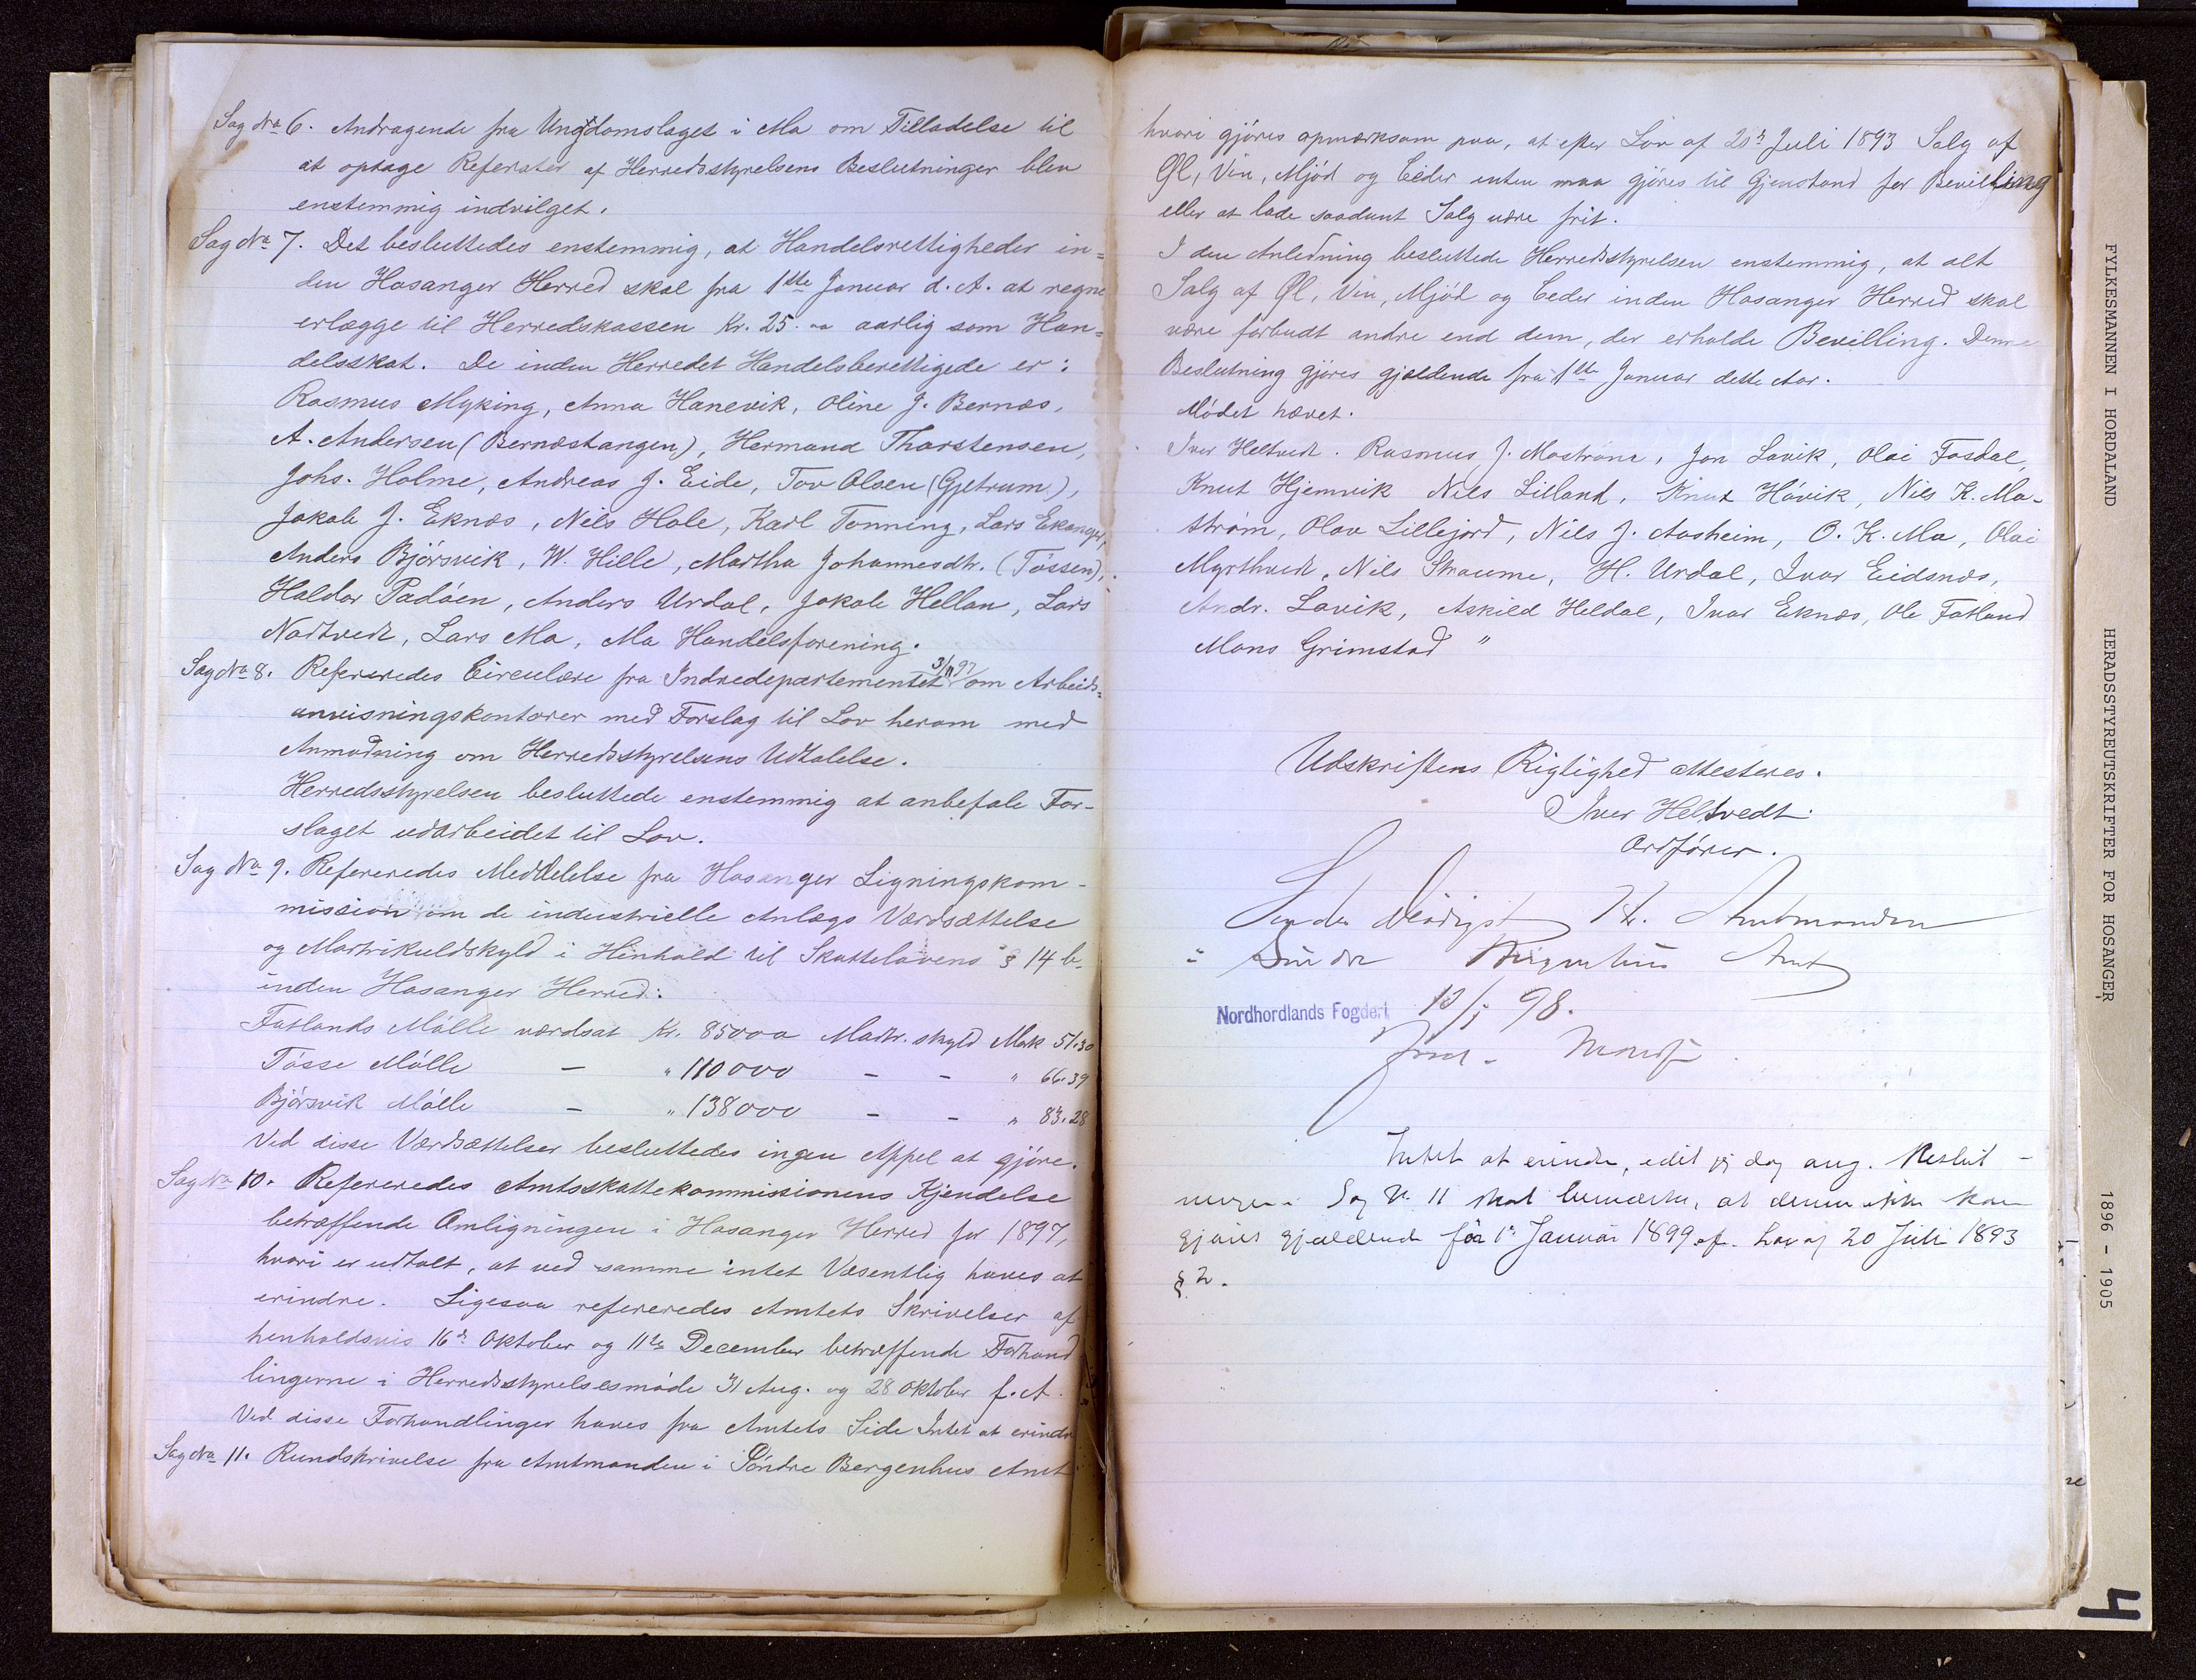 Sag No 6. Andragende fra Ungdomslaget i Mo om Tilladelse til
at optage Referater af Herredsstyrelsens Beslutninger blev
enstemmig indvilget.
Sag No 7. Det besluttedes enstemmig, at Handelsrettigheder in=
den Hosanger Herred skal fra 1ste Januar d. A. at regne
erlægge til Herredskassen Kr. 25.00 aarlig som Han=
delsskat. De inden Herredet Handelsberettigede er:
Rasmus Myking, Anna Hanevik, Oline J. Bernæs,
A. Andersen (Bernæstangen), Hermand Thorstensen,
Johs. Holme, Andreas J. Eide, Tov Olsen (Gjetrum),
Jakob J. Eknæs, Nils Hole, Karl Tonning, Lars Ekanger,
Anders Bjørsvik, W. Hille, Martha Johannesdtr. (Tøssen),
Haldor Padøen, Anders Urdal, Jakob Hellan, Lars
Nodtvedt, Lars Mo, Mo Handelsforening.
Sag No 8. Refereredes Circulære fra Indredepartementet 3/11 97 om Arbeids=
anvisningskontorer med Forslag til Lov herom med
Anmodning om Herredsstyrelsens Udtalelse.
Herredsstyrelsen besluttede enstemmig at anbefale For-
slaget udarbeidet til Lov.
Sag No 9. Refereredes Meddelelse fra Hosanger Ligningskom-
mission om de industrielle Anlægs Værdsættelse
og Matrikuldskyld i Hinhold til Skattelovens § 14 b.
inden Hosanger Herred:
Fatlands Mølle værdsat Kr. 85000 Matr. skyld Mark 51.30
Tøsse Mølle – " 110000 – – " 66.39
Bjørsvik Mølle – " 138000 – – " 83.28
Ved disse Værdsættelser besluttedes ingen Appel at gjøre.
Sag No 10. Refereredes Amtsskattekommissionens Kjendelse
betræffende Omligningen i Hosanger Herred for 1897,
hvori er udtalt, at ved samme intet Væsentlig haves at
erindre. Ligesaa refereredes Amtets Skrivelser af
henholdsvis 16de Oktober og 11te December betræffende Forhand
lingerne i Herredsstyrelsesmøde 31 Aug. og 28 Oktober f. A.
Ved disse Forhandlinger haves fra Amtets Side Intet at erindre
Sag No 11. Rundskrivelse fra Amtmanden i Søndre Bergenhus Amt
hvori gjøres opmærksom paa, at efter Lov af 20de Juli 1893 Salg af
Øl, Vin, Mjød og Ceder enten maa gjøres til Gjenstand for Bevilling
eller at lade saadant Salg være frit.
I den Anledning besluttede Herredsstyrelsen enstemmig, at alt
Salg af Øl, Vin, Mjød og Ceder inden Hosanger Herred skal
være forbudt andre end dem, der erholde Bevilling. Denne
Beslutning gjøres gjældende fra 1ste Januar dette Aar.
Mødet hævet.
Iver Heltvedt. Rasmus J. Mostrøm, Jon Lavik, Olai Fosdal,
Knut Hjemvik Nils Lilland, Knut Høvik, Nils K. Mo-
strøm, Olav Lillejord, Nils J. Aasheim, O. K. Mo, Olai
Myrthvedt, Nils Straume, H. Urdal, Ivar Eidsnæs,
Andr. Lavik, Askild Heldal, Ivar Eknæs, Ole Fatland
Mons Grimstad "
Udskriftens Rigtighed attesteres.
Iver Heltvedt.
Ordfører.
Sendes ærbødigst Hr. Amtmanden
i Søndre Bergenhus Amt
Nordhordlands Fogderi 13/1 98.
Intet at erindre, idet jeg dog ang. Beslut-
ningen i Sag N. 11 skal bemærke, at denne ikke kan
gjøres gjældende før 1. Januar 1899 cf. Lov af 20 Juli 1893
§ 2.
FYLKESMANNEN I HORDALAND
HERADSSTYREUTSKRIFTER FOR HOSANGER
1896 - 1905
4